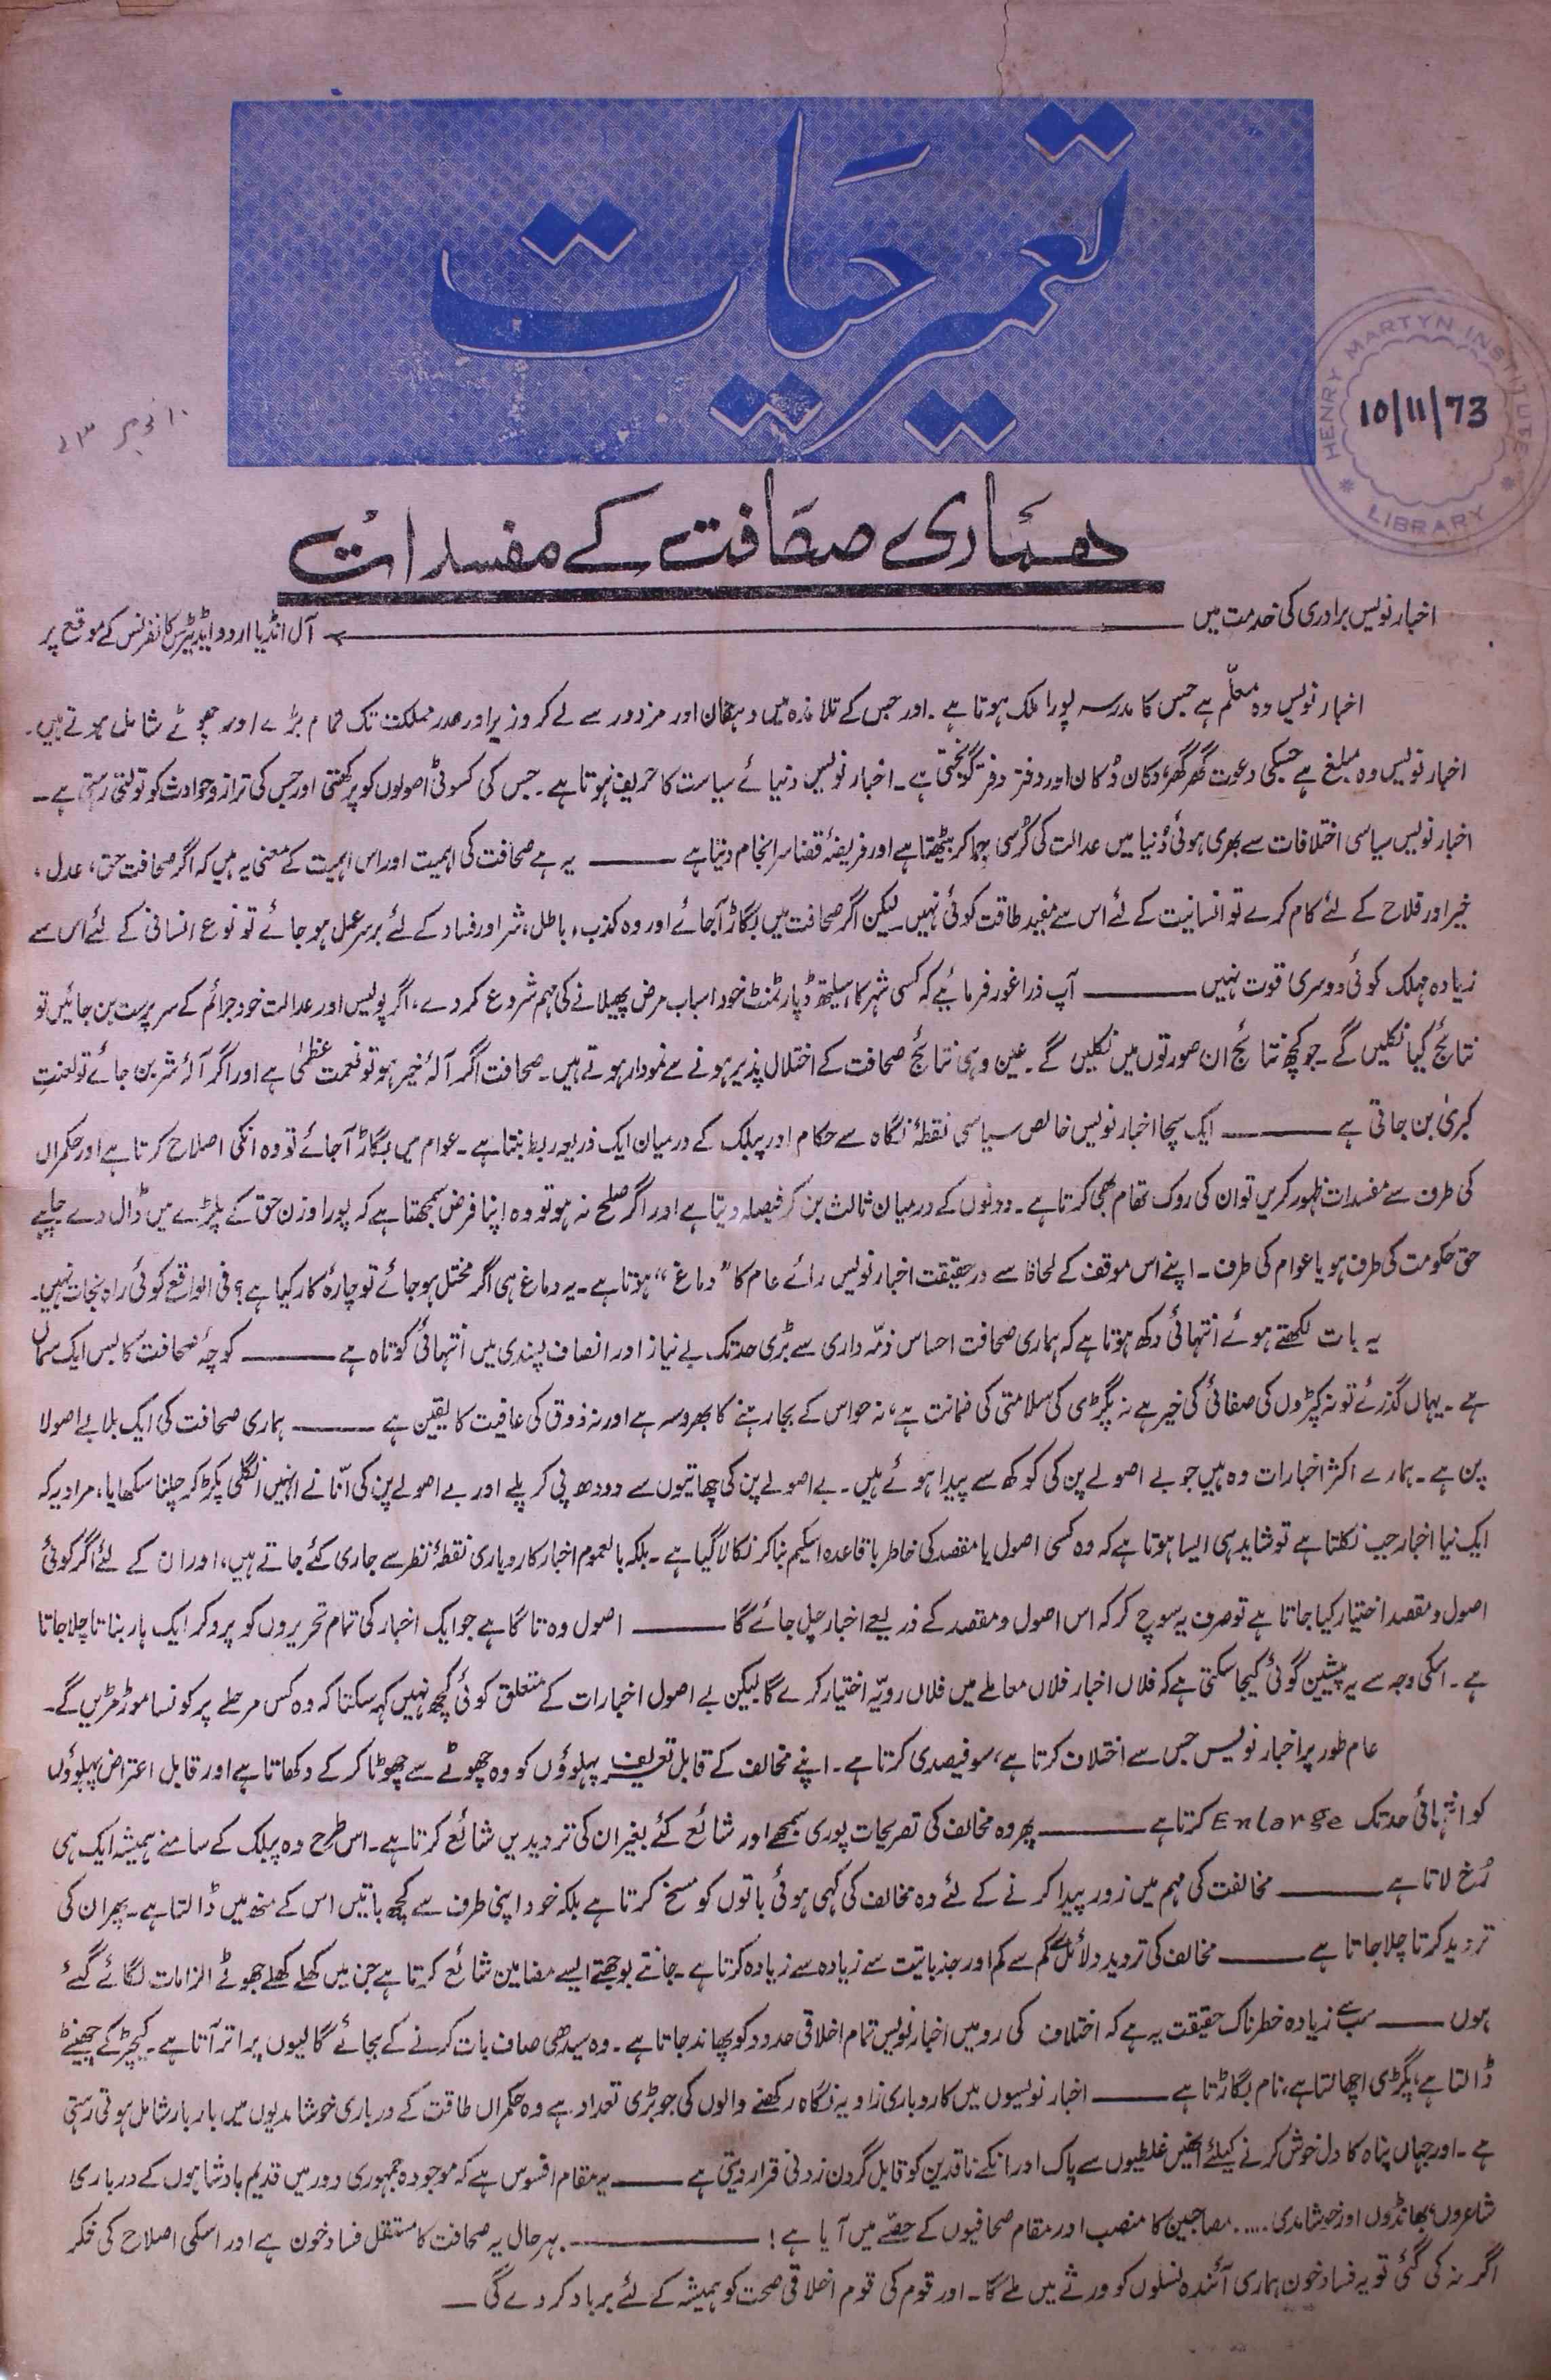 تعمیر حیات
HENRY MARTYN INSTITUTE
LIBRARY
10/11/73
۱۰ نومبر ۷۳
ہماری صحافت کے مفسدات
اخبار نویس برادری کی خدمت میں ـــــــ آل انڈیا اردو ایڈیٹرس کانفرنس کے موقع پر
اخبار نویس وہ معلّم ہے جس کا مدرسہ پورا ملک ہوتا ہے۔ اور جس کے تلامذہ میں دہقان اور مزدور سے لے کر وزیر اور صدر مملکت تک تمام بڑے اور چھوٹے شامل ہوتے ہیں۔
اخبار نویس وہ مبلغ ہے جسکی دعوت گھر گھر، دکان دکان اور دفتر دفتر گونجتی ہے۔ اخبار نویس دنیائے سیاست کا حریف ہوتا ہے۔ جس کی کسوٹی اصولوں کو پرکھتی اور جس کی ترازو حوادث کو تولتی رہتی ہے۔
اخبار نویس سیاسی اختلافات سے بھری ہوئی دُنیا میں عدالت کی کُرسی بچھا کر بیٹھتا ہے اور فریضۂ قضا سرانجام دیتا ہے ـــــــ یہ ہے صحافت کی اہمیت اور اس اہمیت کے معنی یہ ہیں کہ اگر صحافت حق، عدل،
خیر اور فلاح کے لئے کام کرے تو انسانیت کے لئے اس سے مفید طاقت کوئی نہیں۔ لیکن اگر صحافت میں بگاڑ آجائے اور وہ کذب، باطل، شر اور فساد کے لئے برسرعمل ہو جائے تو نوع انسانی کے لئے اس سے
زیادہ مہلک کوئی دوسری قوت نہیں ـــــــ آپ ذرا غور فرمائیے کہ کسی شہر کا ہیلتھ ڈپارٹمنٹ خود اسباب مرض پھیلانے کی مہم شروع کردے، اگر پولیس اور عدالت خود جرائم کے سرپرست بن جائیں تو
نتائج کیا نکلیں گے۔ جو کچھ نتائج ان صورتوں میں نکلیں گے۔ عین وہی نتائج صحافت کے اختلال پذیر ہونے سے نمودار ہوتے ہیں۔ صحافت اگر آلۂ خیر ہو تو نعمت عظمیٰ ہے اور اگر آلۂ شر بن جائے تو لعنتِ
کبریٰ بن جاتی ہے ـــــــ ایک سچا اخبار نویس خالص سیاسی نقطۂ نگاہ سے حکام اور پبلک کے درمیان ایک ذریعہ ربط بنتا ہے۔ عوام میں بگاڑ آجائے تو وہ انکی اصلاح کرتا ہے اور حکمراں
کی طرف سے مفسدات ظہور کریں تو ان کی روک تھام بھی کرتا ہے۔ دونوں کے درمیان ثالث بن کر فیصلہ دیتا ہے اور اگر صلح نہ ہو تو وہ اپنا فرض سمجھتا ہے کہ پورا وزن حق کے پلڑے میں ڈال دے چاہے
حق حکومت کی طرف ہو یا عوام کی طرف۔ اپنے اس موقف کے لحاظ سے درحقیقت اخبار نویس رائے عام کا ”دماغ“ ہوتا ہے۔ یہ دماغ ہی اگر مختل ہو جائے تو چارۂ کار کیا ہے؟ فی الواقع کوئی راہ نجات نہیں۔
یہ بات لکھتے ہوئے انتہائی دکھ ہوتا ہے کہ ہماری صحافت احساس ذمّہ داری سے بڑی حد تک بے نیاز اور انصاف پسندی میں انتہائی کوتاہ ہے ـــــــ کوچۂ صحافت کا بس ایک سماں
ہے۔ یہاں گذرئے تو نہ کپڑوں کی صفائی کی خیر ہے نہ پگڑی کی سلامتی کی ضمانت ہے، نہ حواس کے بجا رہنے کا بھروسہ ہے اور نہ ذوق کی عافیت کا یقین ہے ـــــــ ہماری صحافت کی ایک بلا بے اصولا
پن ہے۔ ہمارے اکثر اخبارات وہ ہیں جو بے اصولے پن کی کوکھ سے پیدا ہوئے ہیں۔ بے اصولے پن کی چھاتیوں سے دودھ پی کر پلے اور بے اصولے پن کی انّا نے انہیں انگلی پکڑ کر چلنا سکھایا، مراد یہ کہ
ایک نیا اخبار جب نکلتا ہے تو شاید ہی ایسا ہوتا ہے کہ وہ کسی اصول یا مقصد کی خاطر باقاعدہ اسکیم بنا کر نکالا گیا ہے۔ بلکہ بالعموم اخبار کاروباری نقطۂ نظر سے جاری کئے جاتے ہیں، اور ان کے لئے اگر کوئی
اصول و مقصد اختیار کیا جاتا ہے تو صرف یہ سوچ کر کہ اس اصول و مقصد کے ذریعے اخبار چل جائے گا ـــــــ اصول وہ تاگا ہے جو ایک اخبار کی تمام تحریروں کو پرو کر ایک ہار بناتا چلا جاتا
ہے۔ اسکی وجہ سے یہ پیشین گوئی کیجا سکتی ہے کہ فلاں اخبار فلاں معاملے میں فلاں رویّہ اختیار کرے گا لیکن بے اصول اخبارات کے متعلق کوئی کچھ نہیں کہہ سکتا کہ وہ کس مرحلے پر کونسا موڑ مڑیں گے۔
عام طور پر اخبار نویس جس سے اختلاف کرتا ہے، سو فیصدی کرتا ہے۔ اپنے مخالف کے قابل تعریف پہلوؤں کو وہ چھوٹے سے چھوٹا کر کے دکھاتا ہے اور قابل اعتراض پہلوؤں
کو انتہائی حد تک Enlarge کرتا ہے ـــــــ پھر وہ مخالف کی تصریحات پوری سمجھے اور شائع کئے بغیر ان کی تردیدیں شائع کرتا ہے۔ اس طرح وہ پبلک کے سامنے ہمیشہ ایک ہی
رُخ لاتا ہے ـــــــ مخالفت کی مہم میں زور پیدا کرنے کے لئے وہ مخالف کی کہی ہوئی باتوں کو مسخ کرتا ہے بلکہ خود اپنی طرف سے کچھ باتیں اس کے منھ میں ڈالتا ہے۔ پھر ان کی
تردید کرتا چلا جاتا ہے ـــــــ مخالف کی تردید دلائل سے کم سے کم اور جذباتیت سے زیادہ سے زیادہ کرتا ہے۔ جانتے بوجھتے ایسے مضامین شائع کرتا ہے جن میں کھلے کھلے جھوٹے الزامات لگائے گئے
ہوں ـــــــ سب سے زیادہ خطرناک حقیقت یہ ہے کہ اختلاف کی رو میں اخبار نویس تمام اخلاقی حدود کو پھاند جاتا ہے۔ وہ سیدھی صاف بات کرنے کے بجائے گالیوں پر اتر آتا ہے۔ کیچڑ کے چھینٹے
ڈالتا ہے، پگڑی اچھالتا ہے، نام بگاڑتا ہے ـــــــ اخبار نویسوں میں کاروباری زاویہ نگاہ رکھنے والوں کی جو بڑی تعداد ہے وہ حکمراں طاقت کے درباری خوشامدیوں میں بار بار شامل ہوتی رہتی
ہے۔ اور جہاں پناہ کا دل خوش کرنے کیلئے انھیں غلطیوں سے پاک اور انکے ناقدین کو قابل گردن زدنی قرار دیتی ہے ـــــــ یہ مقام افسوس ہے کہ موجودہ جمہوری دور میں قدیم بادشاہوں کے درباری
شاعروں، بھانڈوں اور خوشامدی ..... مصاحبین کا منصب اور مقام صحافیوں کے حصّے میں آیا ہے! ـــــــ بہرحال یہ صحافت کا مستقل فساد خون ہے اور اسکی اصلاح کی فکر
اگر نہ کی گئی تو یہ فساد خون ہماری آئندہ نسلوں کو ورثے میں ملے گا۔ اور قوم کی قوم اخلاقی صحت کو ہمیشہ کے لئے برباد کر دے گی ــ